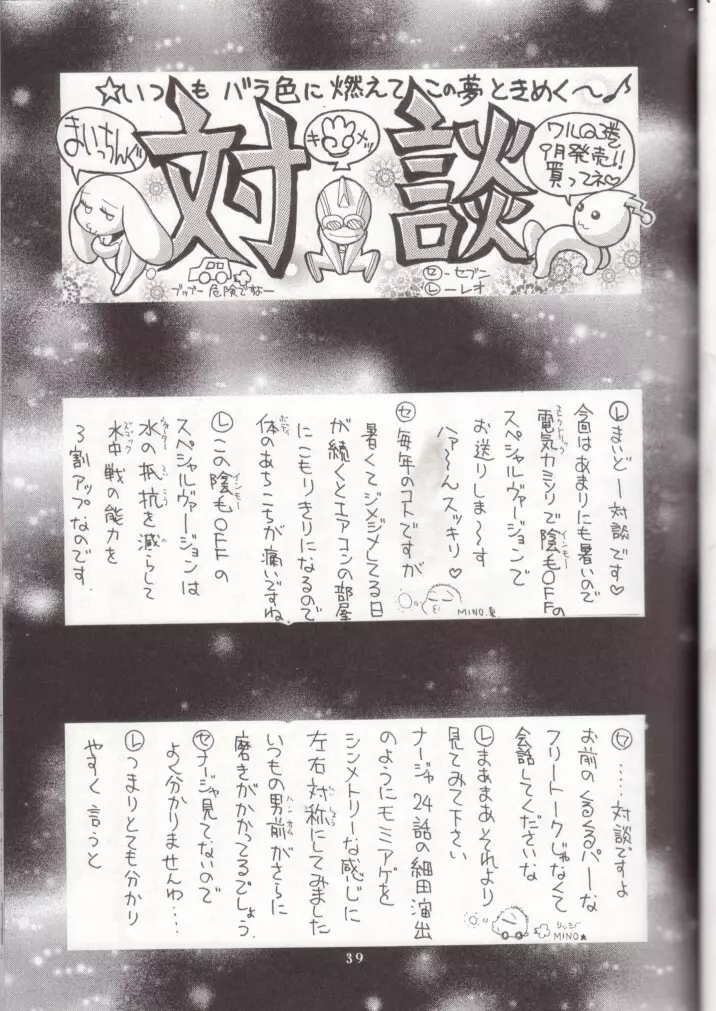 ☆いつもバラ色に燃えてこの夢ときめく〜♪
対談
まいっちんぐ
キュメッ
ワルQ3巻
9月発売!!
買ってネ♡
ブッブー危険でなー
セ-セブー
レ-レオ
レ まいどー対談です♡
今回はあまりにも暑いので
電気カミソリで陰毛OFFの
エレクトリック
インモー
スペシャルヴァージョンで
お送りしま〜す
ハァ〜んスッキリ♡
セ 毎年のコトですが
暑くてジメジメしてる日
が続くとエアコンの部屋
にこもりきりになるので
体のあちこちが痛いですね.
ボディ
レ この陰毛OFFの
インモー
スペシャルヴァージョンは
水の抵抗を減らして
ウォーター
水中戦の能力を
3割アップなのです.
MINO.
セ ……対談ですよ
お前のくるくるパーな
フリートークじゃなくて
会話してくださいな
レ まあまあそれより
見てみて下さい
ナージャ24話の細田演出
のようにモミアゲを
シンメトリーな感じに
左右対称にしてみました
いつもの男前がさらに
ハンサム
磨きがかかってるでしょう.
セ ナージャ見てないので
よく分かりませんわ….
レ つまりとても分かり
やすく言うと
MINO★
39